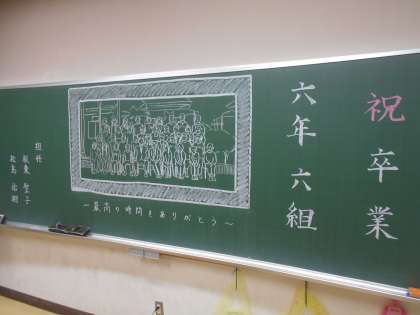 祝 卒業
六年 六組
～最高の時間をありがとう～
担任
聖子